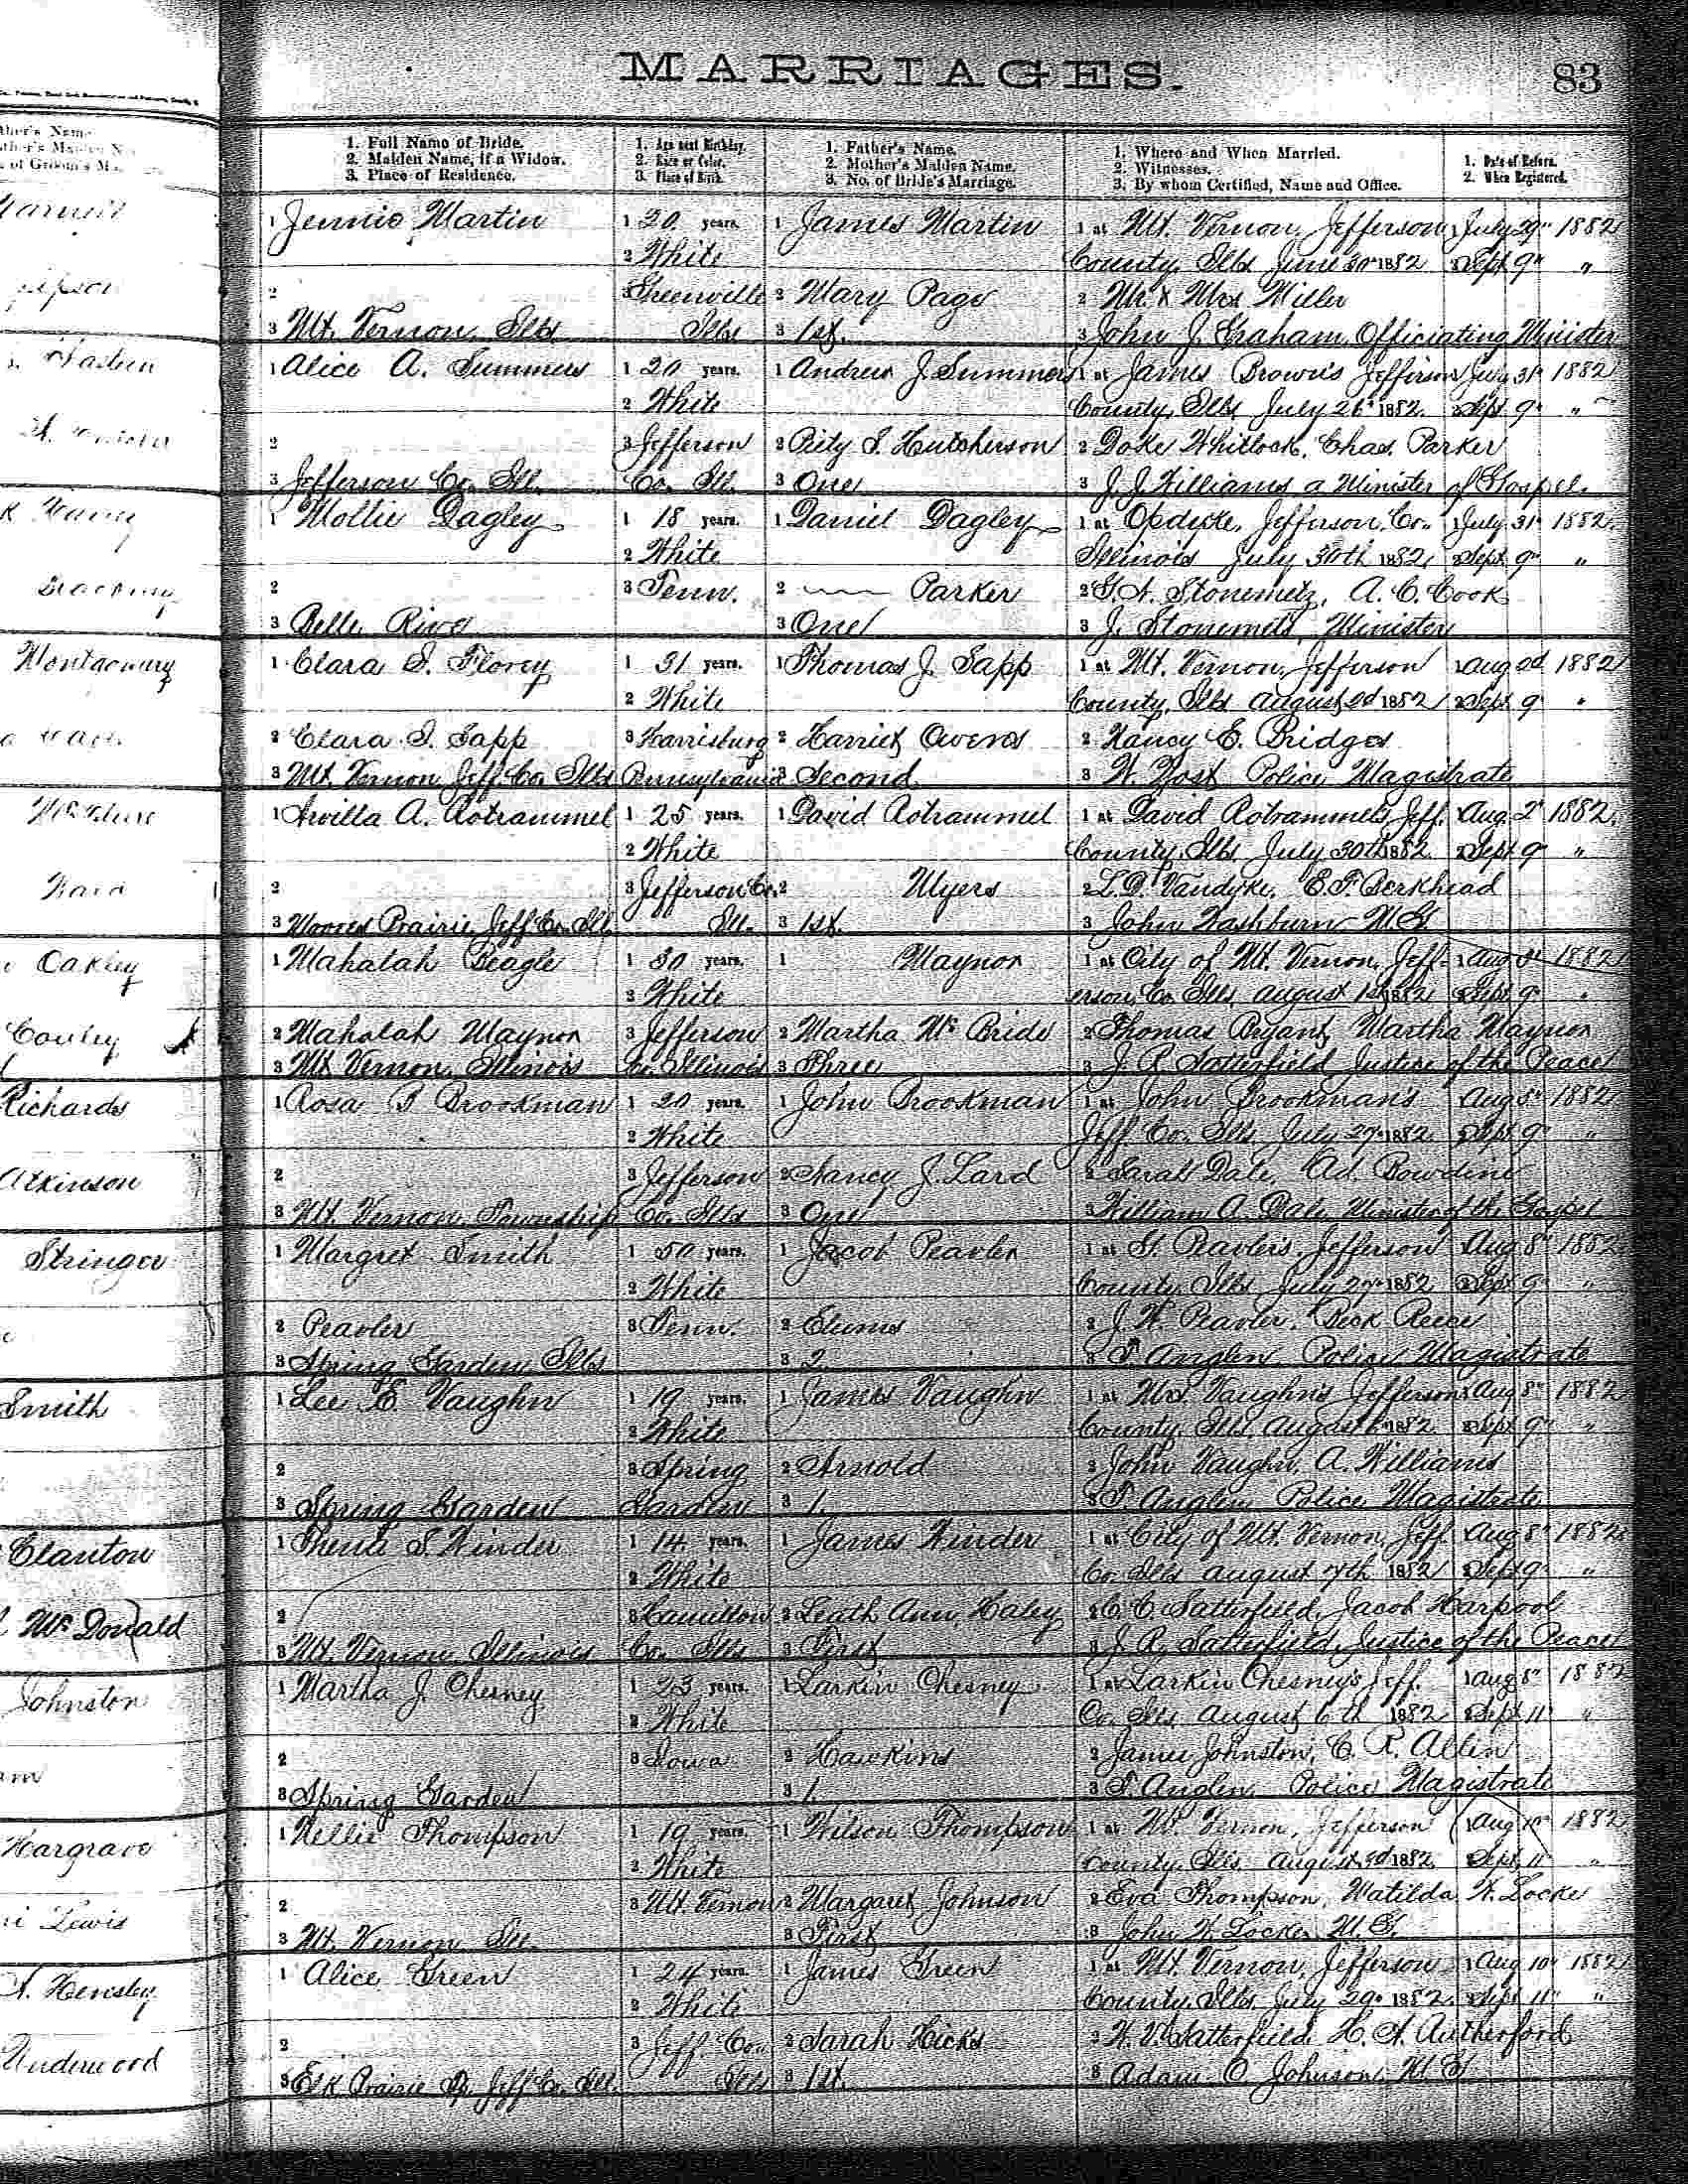 MARRIAGES.
83
1. Full Name of Bride.
2. Maiden Name, if a Widow.
3. Place of Residence.
1. Age next Birthday.
2. Race or Color.
3. Place of Birth.
1. Father's Name.
2. Mother's Maiden Name.
3. No. of Bride's Marriage.
1. Where and When Married.
2. Witnesses.
3. By whom Certified, Name and Office.
1. Date of Return.
2. When Registered.
1 Jennie Martin 1 20 years. 1 James Martin 1 at Mt. Vernon, Jefferson 1 July 29" 1882
2 White County, Ills June 30" 1882 2 Sept 9" "
2 3 Greenville 2 Mary Page 2 Mr & Mrs Miller
3 Mt. Vernon, Ills Ills 3 1st. 3 John J. Graham, Officiating Minister
1 Alice A. Summers 1 20 years. 1 Andrew J. Summers 1 at James Brown's Jefferson July 31" 1882
2 White County, Ills, July 26" 1882. 2 Sept 9" "
2 3 Jefferson 2 Piety S. Hutcherson 2 Doke Whitlock, Chas. Parker
3 Jefferson Co. Ill. Co. Ill. 3 One 3 J. J. Williams a Minister of Gospel.
1 Mollie Dagley 1 18 years. 1 Daniel Dagley 1 at Opdyke, Jefferson, Co. 1 July 31" 1882.
2 White Illinois July 30th 1882, 2 Sept 9" "
2 3 Tenn. 2 Parker 2 Stonemetz, A. C. Cook
3 Belle Rive 3 One 3 J. Stonemetz, Minister
Montgomery
1 Clara S. Florey 1 31 years. 1 Thomas J. Sapp 1 at Mt. Vernon, Jefferson 1 Aug 2d. 1882
2 White County, Ills August 2d 1882 2 Sept 9" "
2 Clara S. Sapp 3 Harrisburg 2 Harriet Owens 2 Nancy E. Bridges
3 Mt. Vernon, Jeff Co. Ills Pennsylvania 3 Second 3 W. Yost Police Magistrate
1 Arvilla A. Rotrammel 1 25 years. 1 David Rotrammel 1 at David Rotrammels, Jeff. Aug. 2" 1882.
2 White County, Ills, July 30th 1882. 2 Sept 9" "
2 3 Jefferson Co. 2 Myers 2 L. D. Vandyke, E. F. Berkhead
3 Moores Prairie, Jeff Co. Ill. Ill. 3 1st. 3 John Washburn M. G.
Oakley
1 Mahalah Beagle 1 30 years. 1 Maynor 1 at City of Mt. Vernon, Jeff- 1 Aug 1882
2 White erson, Co. Ills, August 1st 1882 2 Sept 9" "
2 Mahalah Maynor 3 Jefferson 2 Martha McBride 2 Thomas Bryant, Martha Maynor
3 Mt Vernon, Illinois Co. Illinois 3 Three 3 J. R. Satterfield Justice of the Peace
Richards
1 Rosa Brookman 1 20 years. 1 John Brookman 1 at John Brookman's Aug 5" 1882
2 White Jeff Co. Ills, July 27" 1882. 2 Sept 9" "
Atkinson
2 3 Jefferson 2 Nancy J. Lard 2 Sarah Dale, Ad. Bowdine
3 Mt. Vernon, Township Co. Ills 3 One 3 William A. Dale Minister of the Gospel
Stringer
1 Margret Smith 1 50 years. 1 Jacob Peavler 1 at Peavler's, Jefferson Aug 8" 1882
2 White County, Ills, July 27" 1882 2 Sept 9" "
2 Peavler 3 Tenn. 2 Elums 2 J. W. Peavler. Beck Reece
3 Spring Garden Ills 3 2 3 T. Anglen Police Magistrate
Smith
1 Lee E. Vaughn 1 19 years. 1 James Vaughn 1 at Mrs. Vaughn's Jefferson 1 Aug 8" 1882
2 White County, Ills, August 6" 1882. 2 Sept 9" "
2 3 Spring 2 Arnold 2 John Vaughn, A. Williams
3 Spring Garden Garden 3 1. 3 T. Anglen Police Magistrate
Clanton
1 S. Winder 1 14 years. 1 James Winder 1 at City of Mt. Vernon, Jeff. Aug 8" 1882
2 White Co. Ills August 7th 1882 2 Sept 9" "
McDonald
2 3 Hamilton 2 Leath Ann, Haley 2 C. C. Satterfield, Jacob Harpool
3 Mt. Vernon Illinois Co. Ills 3 First 3 J. R. Satterfield, Justice of the Peace
Johnston
1 Martha J. Chesney 1 23 years. 1 Larkin Chesney 1 at Larkin Chesney's Jeff. 1 Aug 8" 1882
2 White Co. Ills, August 6th 1882 2 Sept 11" "
2 3 Iowa 2 Hawkins 2 James Johnston, C. R. Allen
3 Spring Garden 3 1. 3 T. Anglen, Police Magistrate
Hargrave
1 Nellie Thompson 1 19 years. 1 Wilson Thompson 1 at Mt. Vernon, Jefferson 1 Aug 10" 1882
2 White County, Ills. August 1882. Sept 11 "
Lewis
2 3 Mt. Vernon 2 Margaret Johnson 2 Eva Thompson, Matilda W. Locke
3 Mt. Vernon Ill. 3 First 3 John W. Locke, M. G.
Hensley
1 Alice Green 1 24 years. 1 James Green 1 at Mt. Vernon, Jefferson 1 Aug 10" 1882
2 White County, Ills, July 29" 1882. 2 Sept 11" "
Underwood
2 3 Jeff. Co. 2 Sarah Hicks 2 W. V. Satterfield, H. A. Rutherford
3 Elk Prairie Jeff Co. Ill. Ills 3 1st. 3 Adam O. Johnson, M. G.